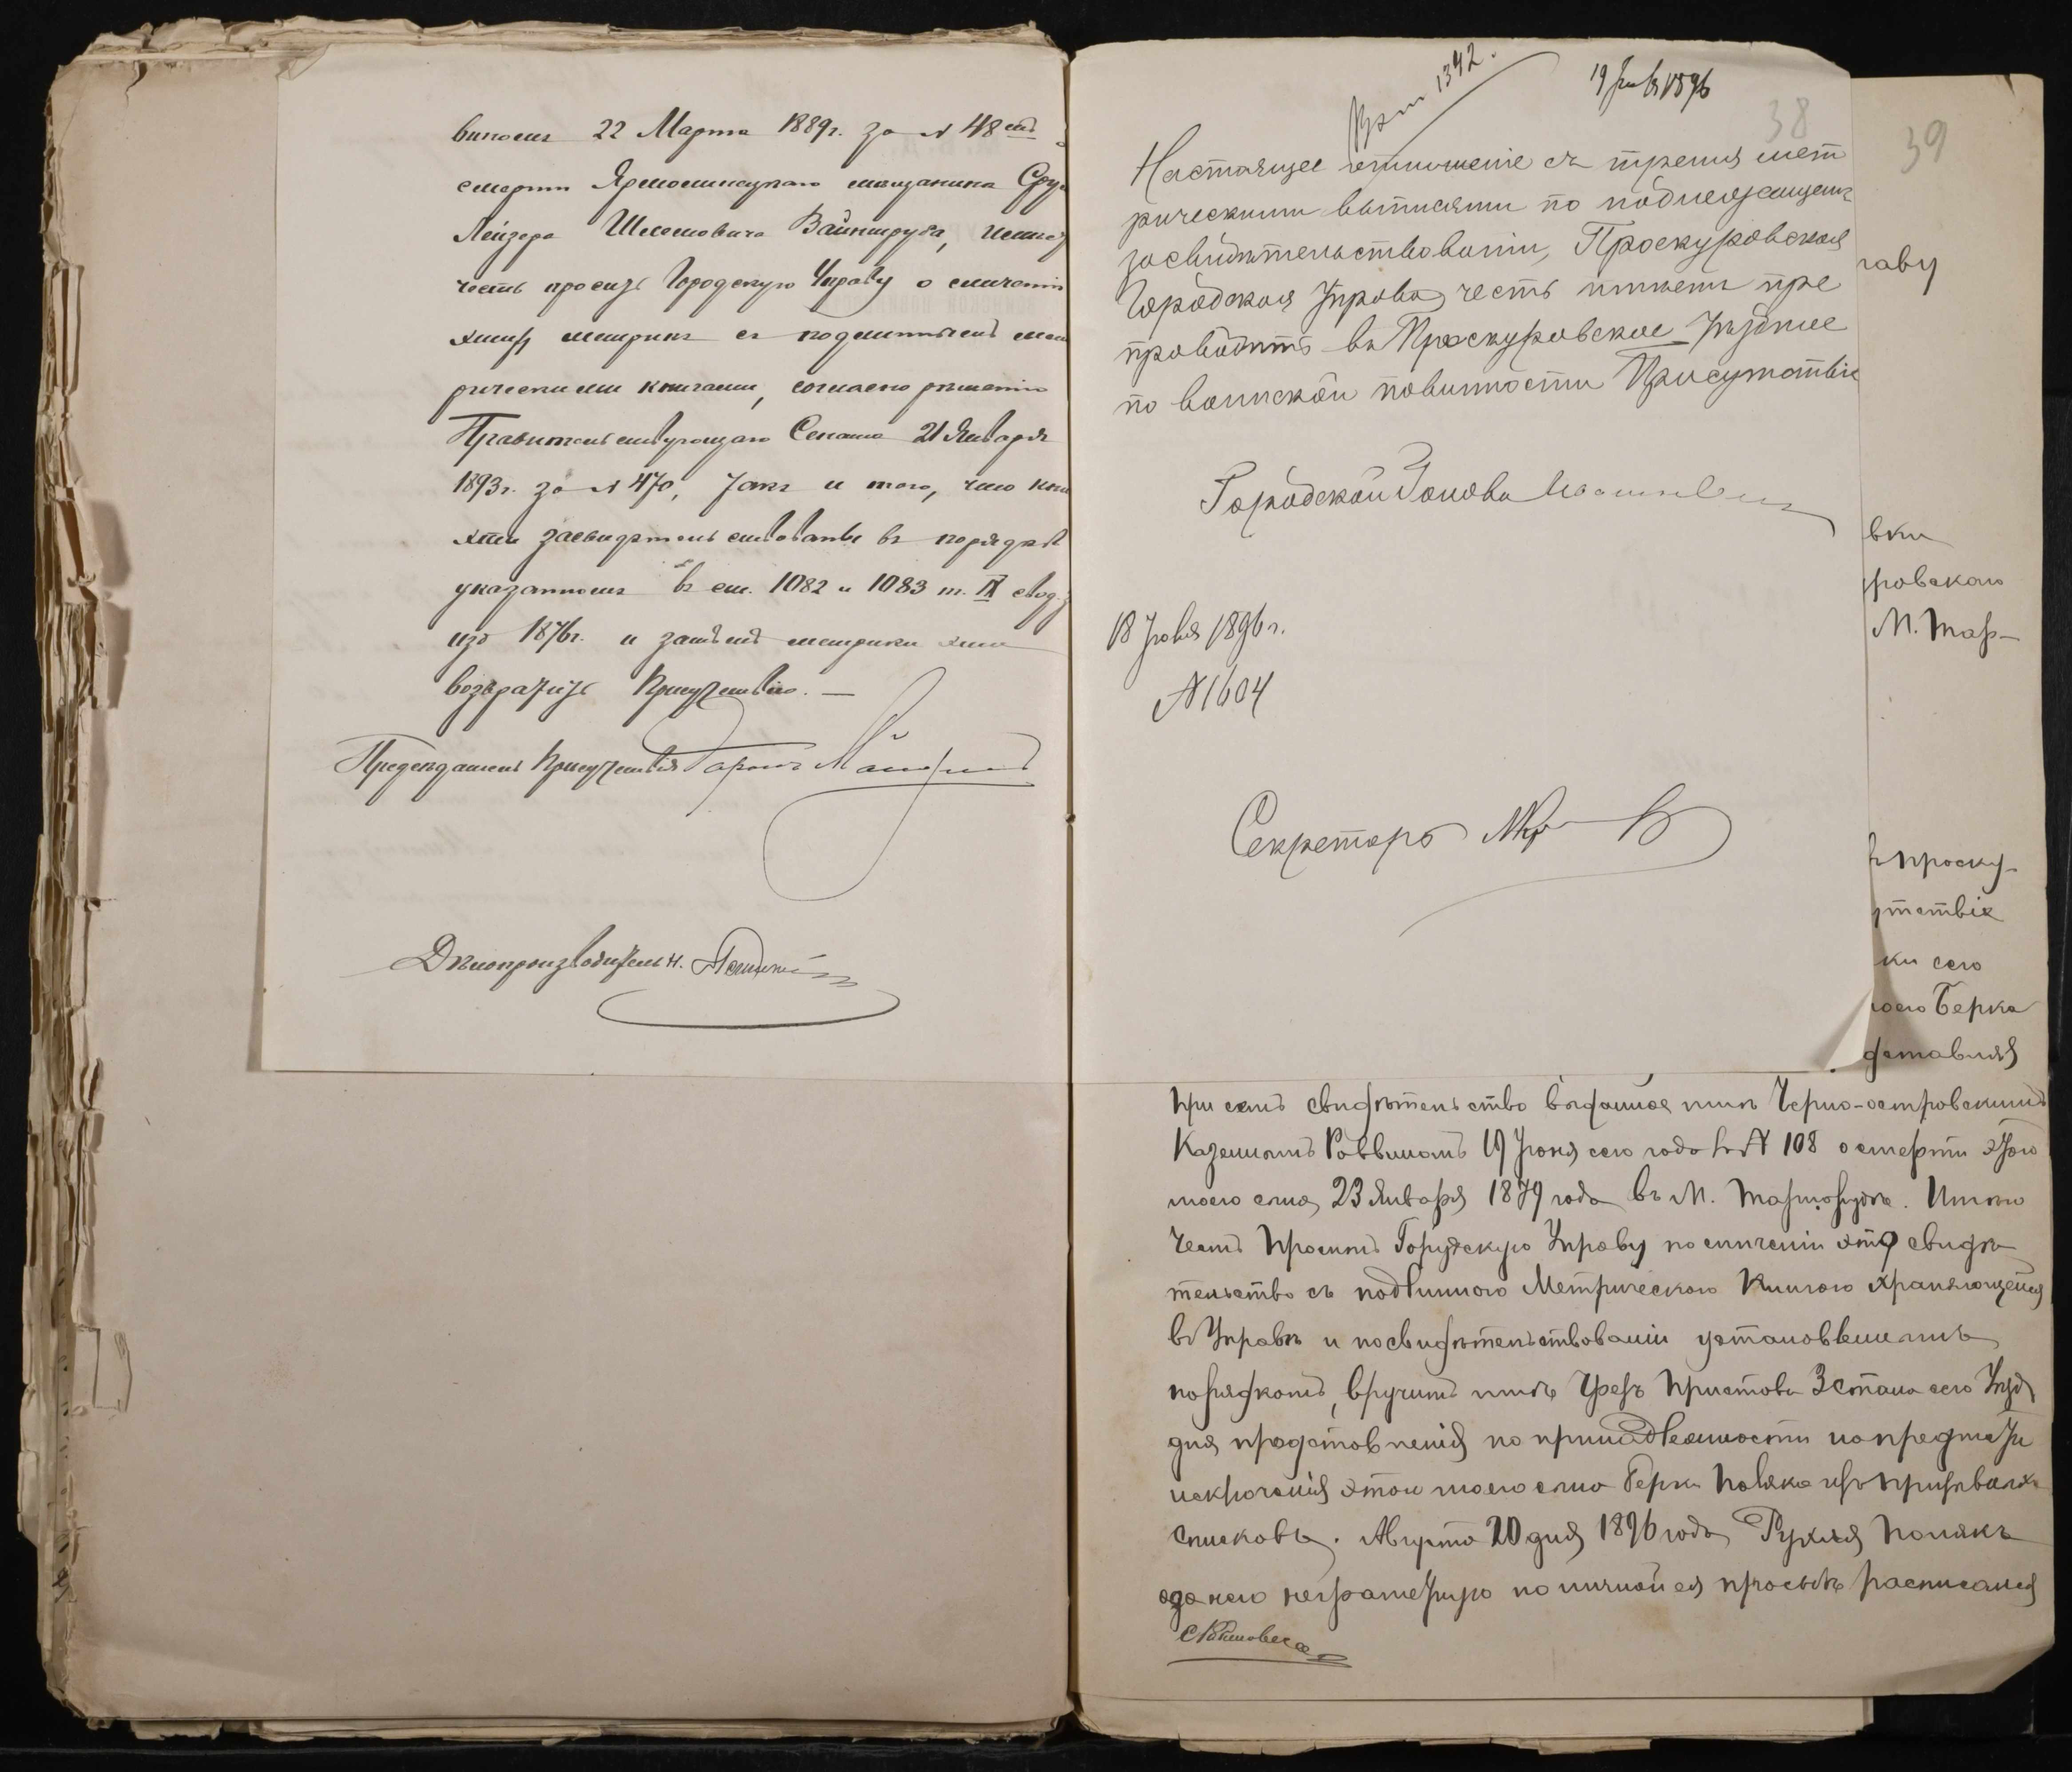 виномъ 22 Марта 1889г. за № 48
смерти Ярмолинецкаго мещанина Сру
Лейзера Шлемовича Вайнтруба, имеетъ
честь просить Городскую Управу о сличеніи
этихъ метрикъ съ подлинными мет
рическими книгами, согласно решенію
Правительствующаго Сената 21 Января
1893г. за № 470, такъ и того, что кни
засвидетельствованы въ порядке
указанномъ въ ст. 1082 и 1083 т. IX свод. з
изд 1876г. и затемъ метрики эти
возвратить Присутствію. —
Председатель Присутствія Баронъ
Делопроизводитель Н.
1392.
19 1896
38
Настоящее отношеніе съ тремя мет
рическими выписями по надлежащемъ
засвидѣтельствованіи, Проскуровская
Городская Управа честь имѣетъ пре
проводить въ Проскуровское Уѣздное
по воинской повинности Присутствіе
Городской Голова
18 Іюня 1896г.
№ 1604
Секретарь
39
раву
вки
ровскаго
М. Тар-
Проску-
утствіе
ки сего
моего Берка
дставляя
при семъ свидѣтельство выданное мнѣ Черно-островскимъ
Казеннымъ Раввиномъ 19 Іюня сего года за № 108 о смерти этого
моего сына 23 Января 1879 года въ М. Тарнорудѣ. Имѣю
честь просить Городскую Управу по сличеніи это свидѣ
тельство съ подлинною Метрическою Книгою хранящейся
въ Управѣ и по свидѣтельствованіи установленнымъ
порядкомъ, вручить мнѣ чрезъ Пристава 3 стана сего Уѣзда
для представленія по принадлежности на предметъ
исключенія этого моего сына Берка Поляка изъ призывныхъ
списковъ. Августа 20 дня 1896 года Рухля Полякъ
а за нею неграмотную по личной ея просьбѣ расписался